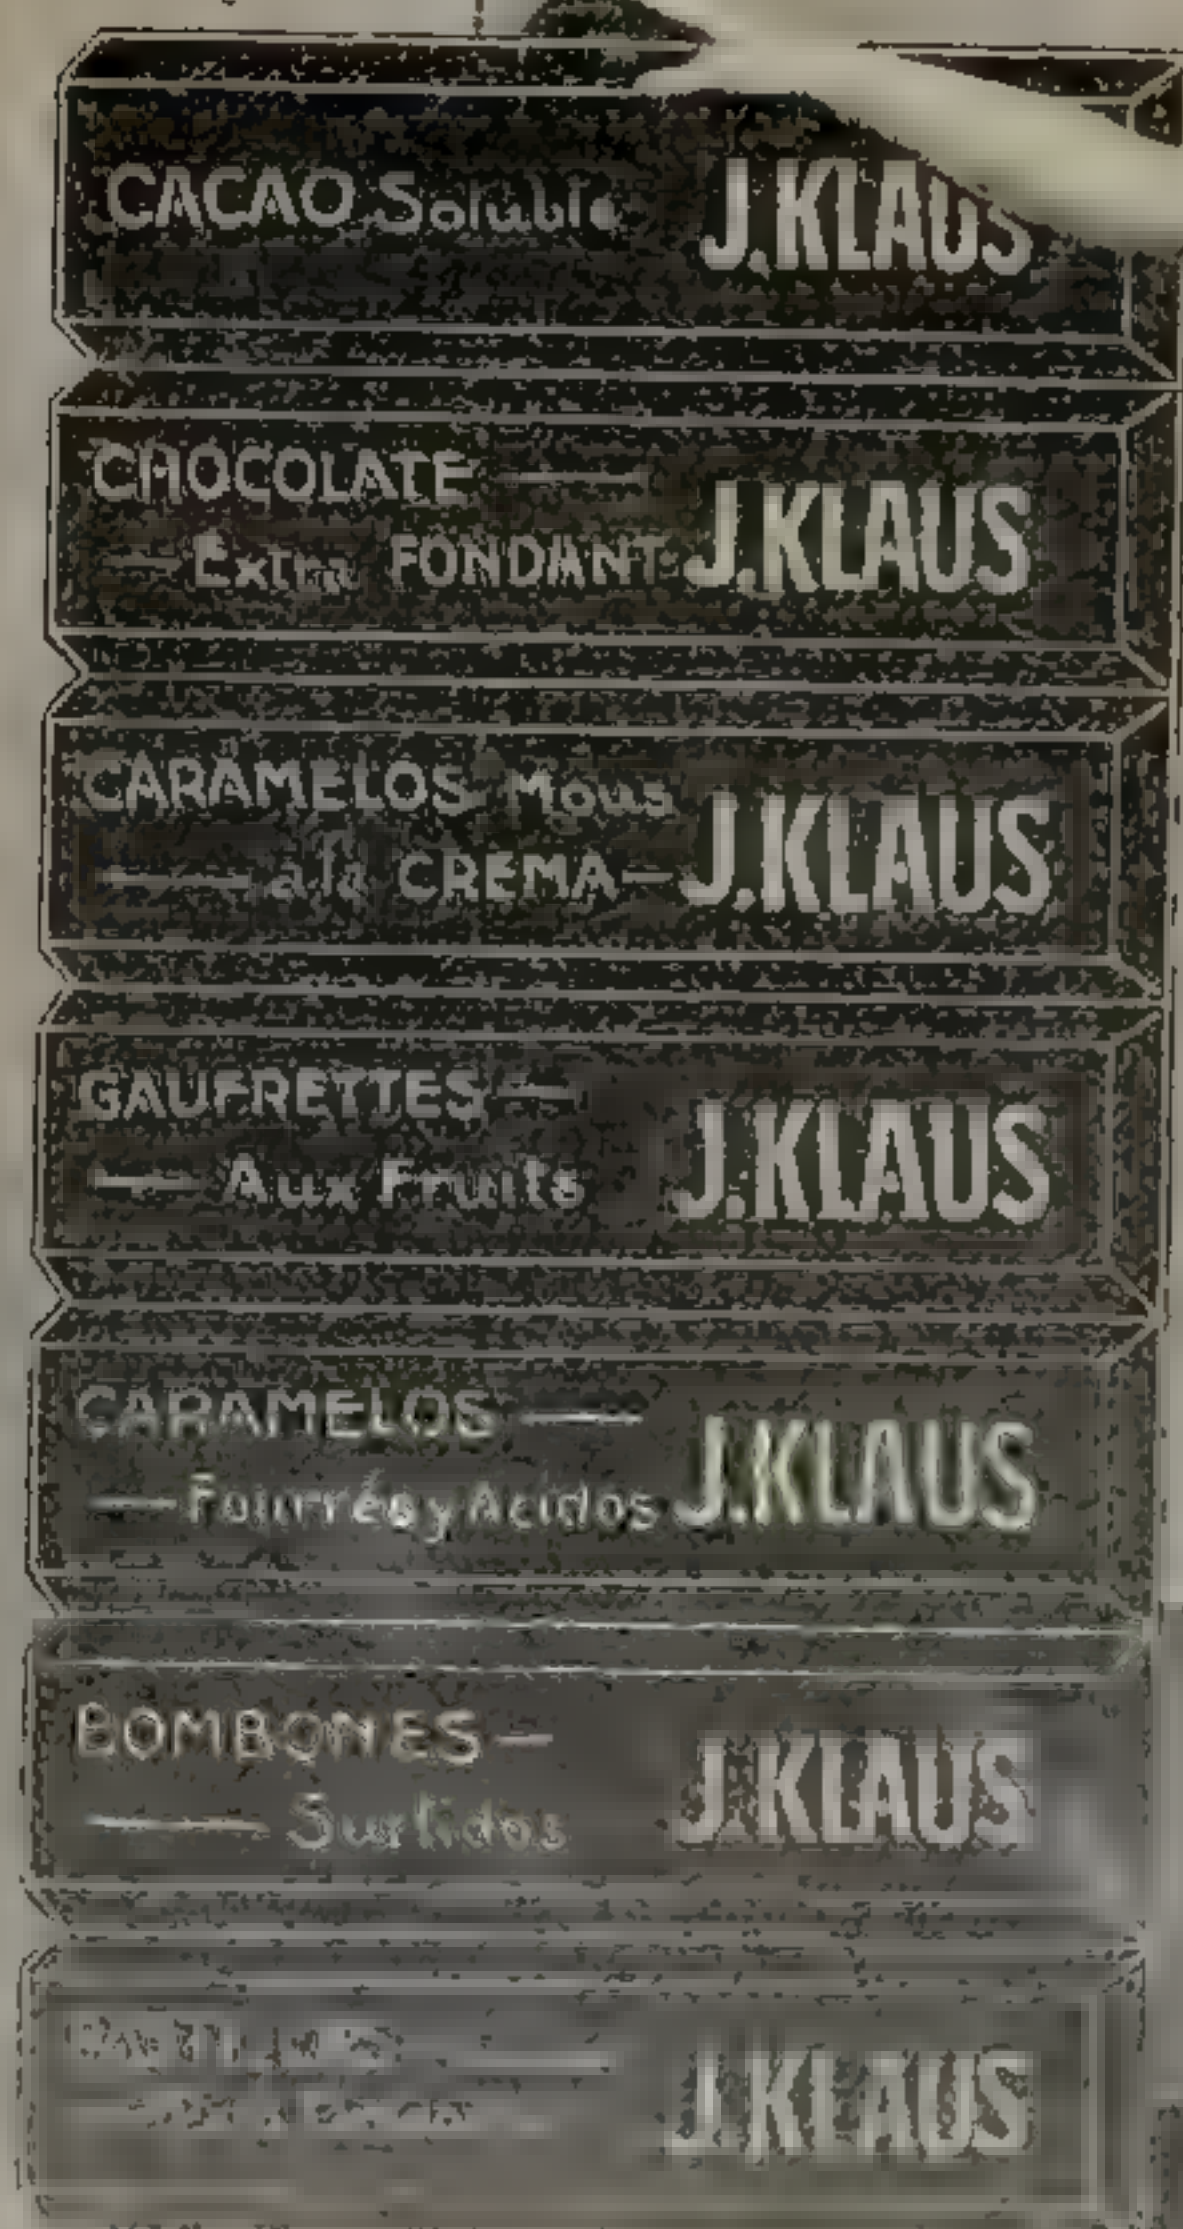 CACAO Soluble J.KLAUS
CHOCOLATE
Extra FONDANT J.KLAUS
CARAMELOS Mous
a la CREMA J.KLAUS
GAUFRETTES
Aux Fruits J.KLAUS
CARAMELOS
Fourrés y Acidos J.KLAUS
BOMBONES
Surtidos J.KLAUS
J.KLAUS